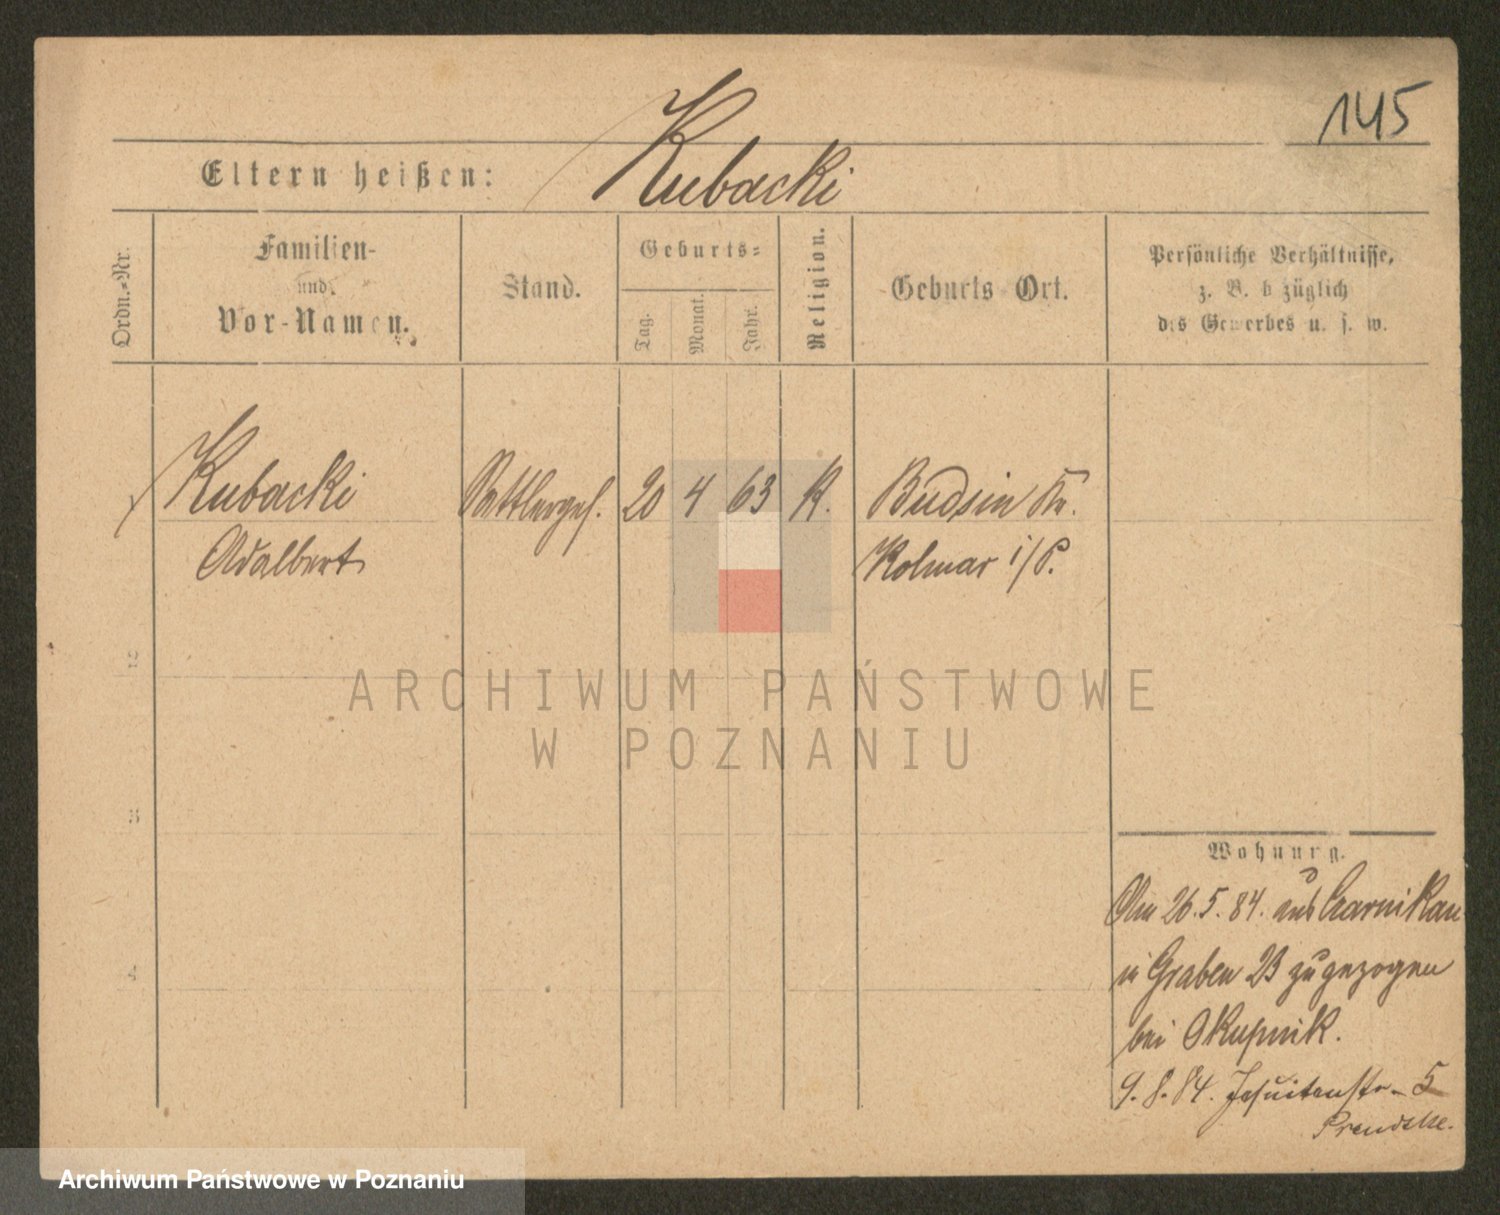 145
Eltern heißen: Kubacki
Ordn.-Nr.
Familien-
und
Vor-Namen.
Stand.
Geburts-
Tag.
Monat.
Jahr.
Religion.
Geburts Ort.
Persönliche Verhältnisse,
z. B. bezüglich
des Gewerbes u. s. w.
Kubacki Sattlerges. 20 4 63 K. Budsin Kr.
Adalbert Kolmar i/P.
2
3
4
ARCHIWUM PAŃSTWOWE
W POZNANIU
Wohnung.
Am 26.5.84. aus Czarnikau
n Graben 2B zugezogen
bei Skupnik.
9.8.84. Jesuitenstr. 5
Archiwum Państwowe w Poznaniu